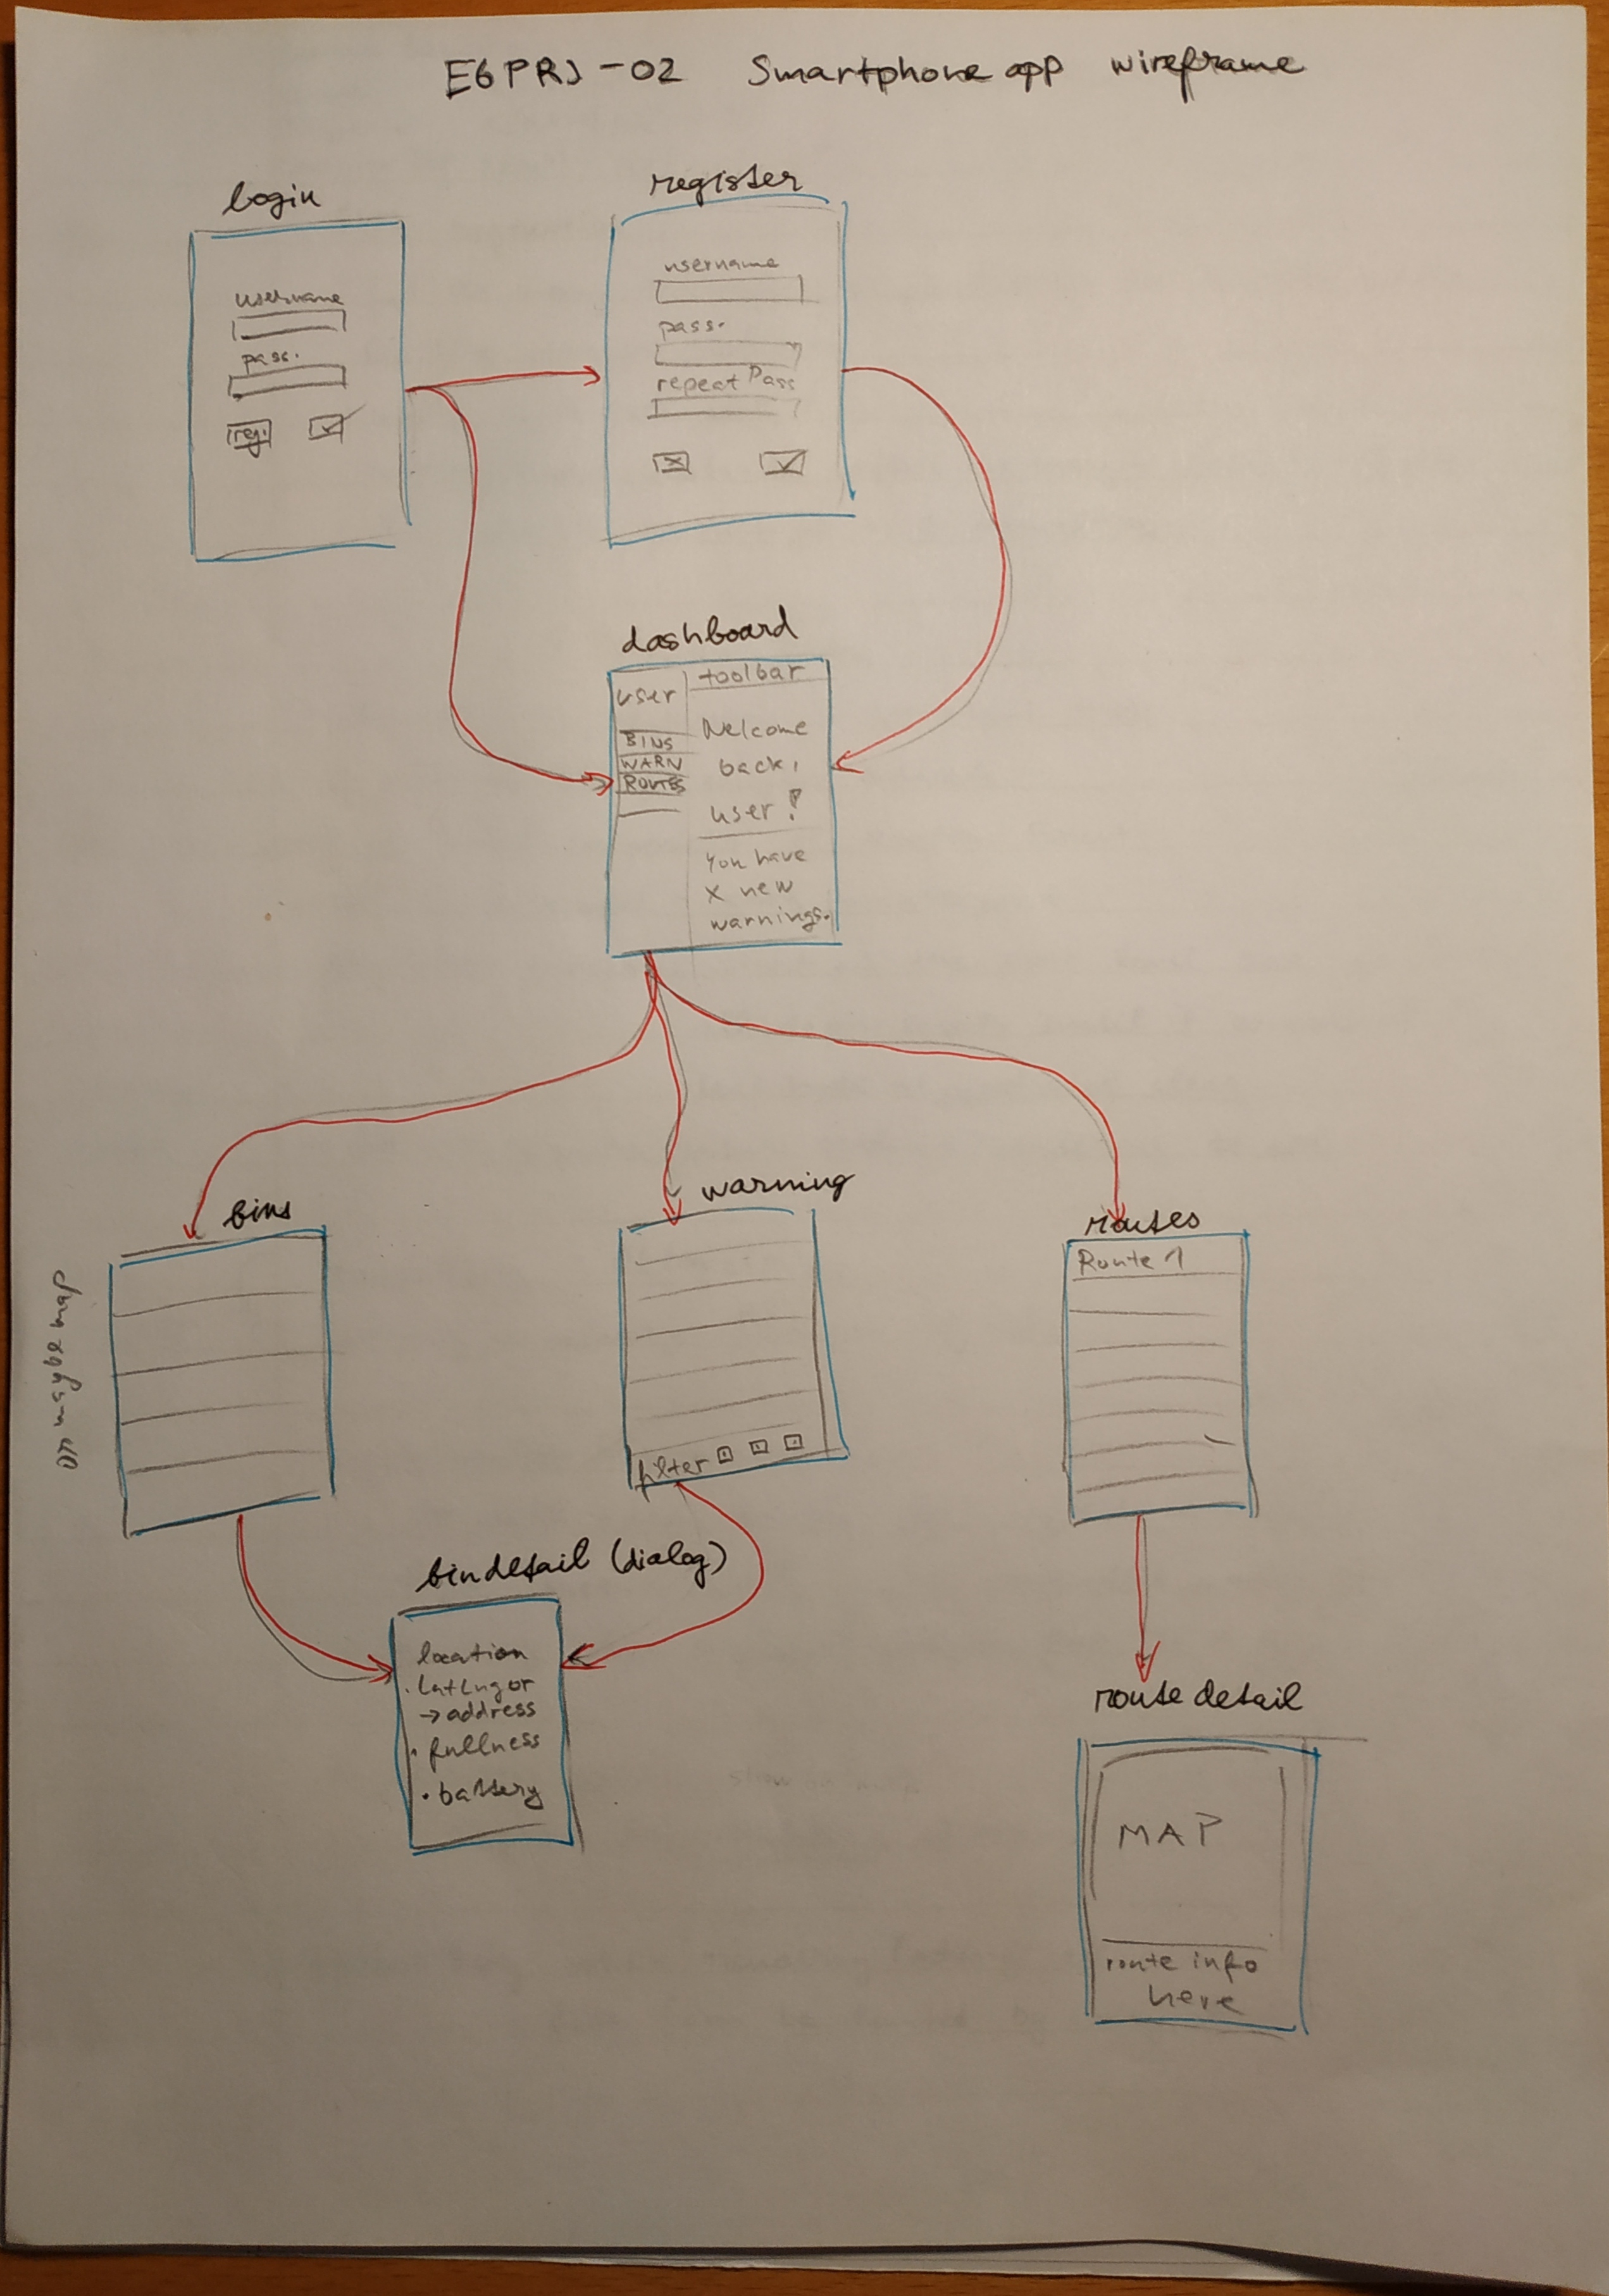 E6PRJ-02 Smartphone app wireframe
login
username
pass.
reg.
register
username
pass.
repeat Pass
dashboard
user
BINS
WARN
ROUTES
toolbar
Welcome
back,
user!
You have
X new
warnings.
bins
or maybe map
warning
filter
routes
Route 1
bin detail (dialog)
location
. LatLng or
→ address
. fullness
. battery
route detail
MAP
route info
here